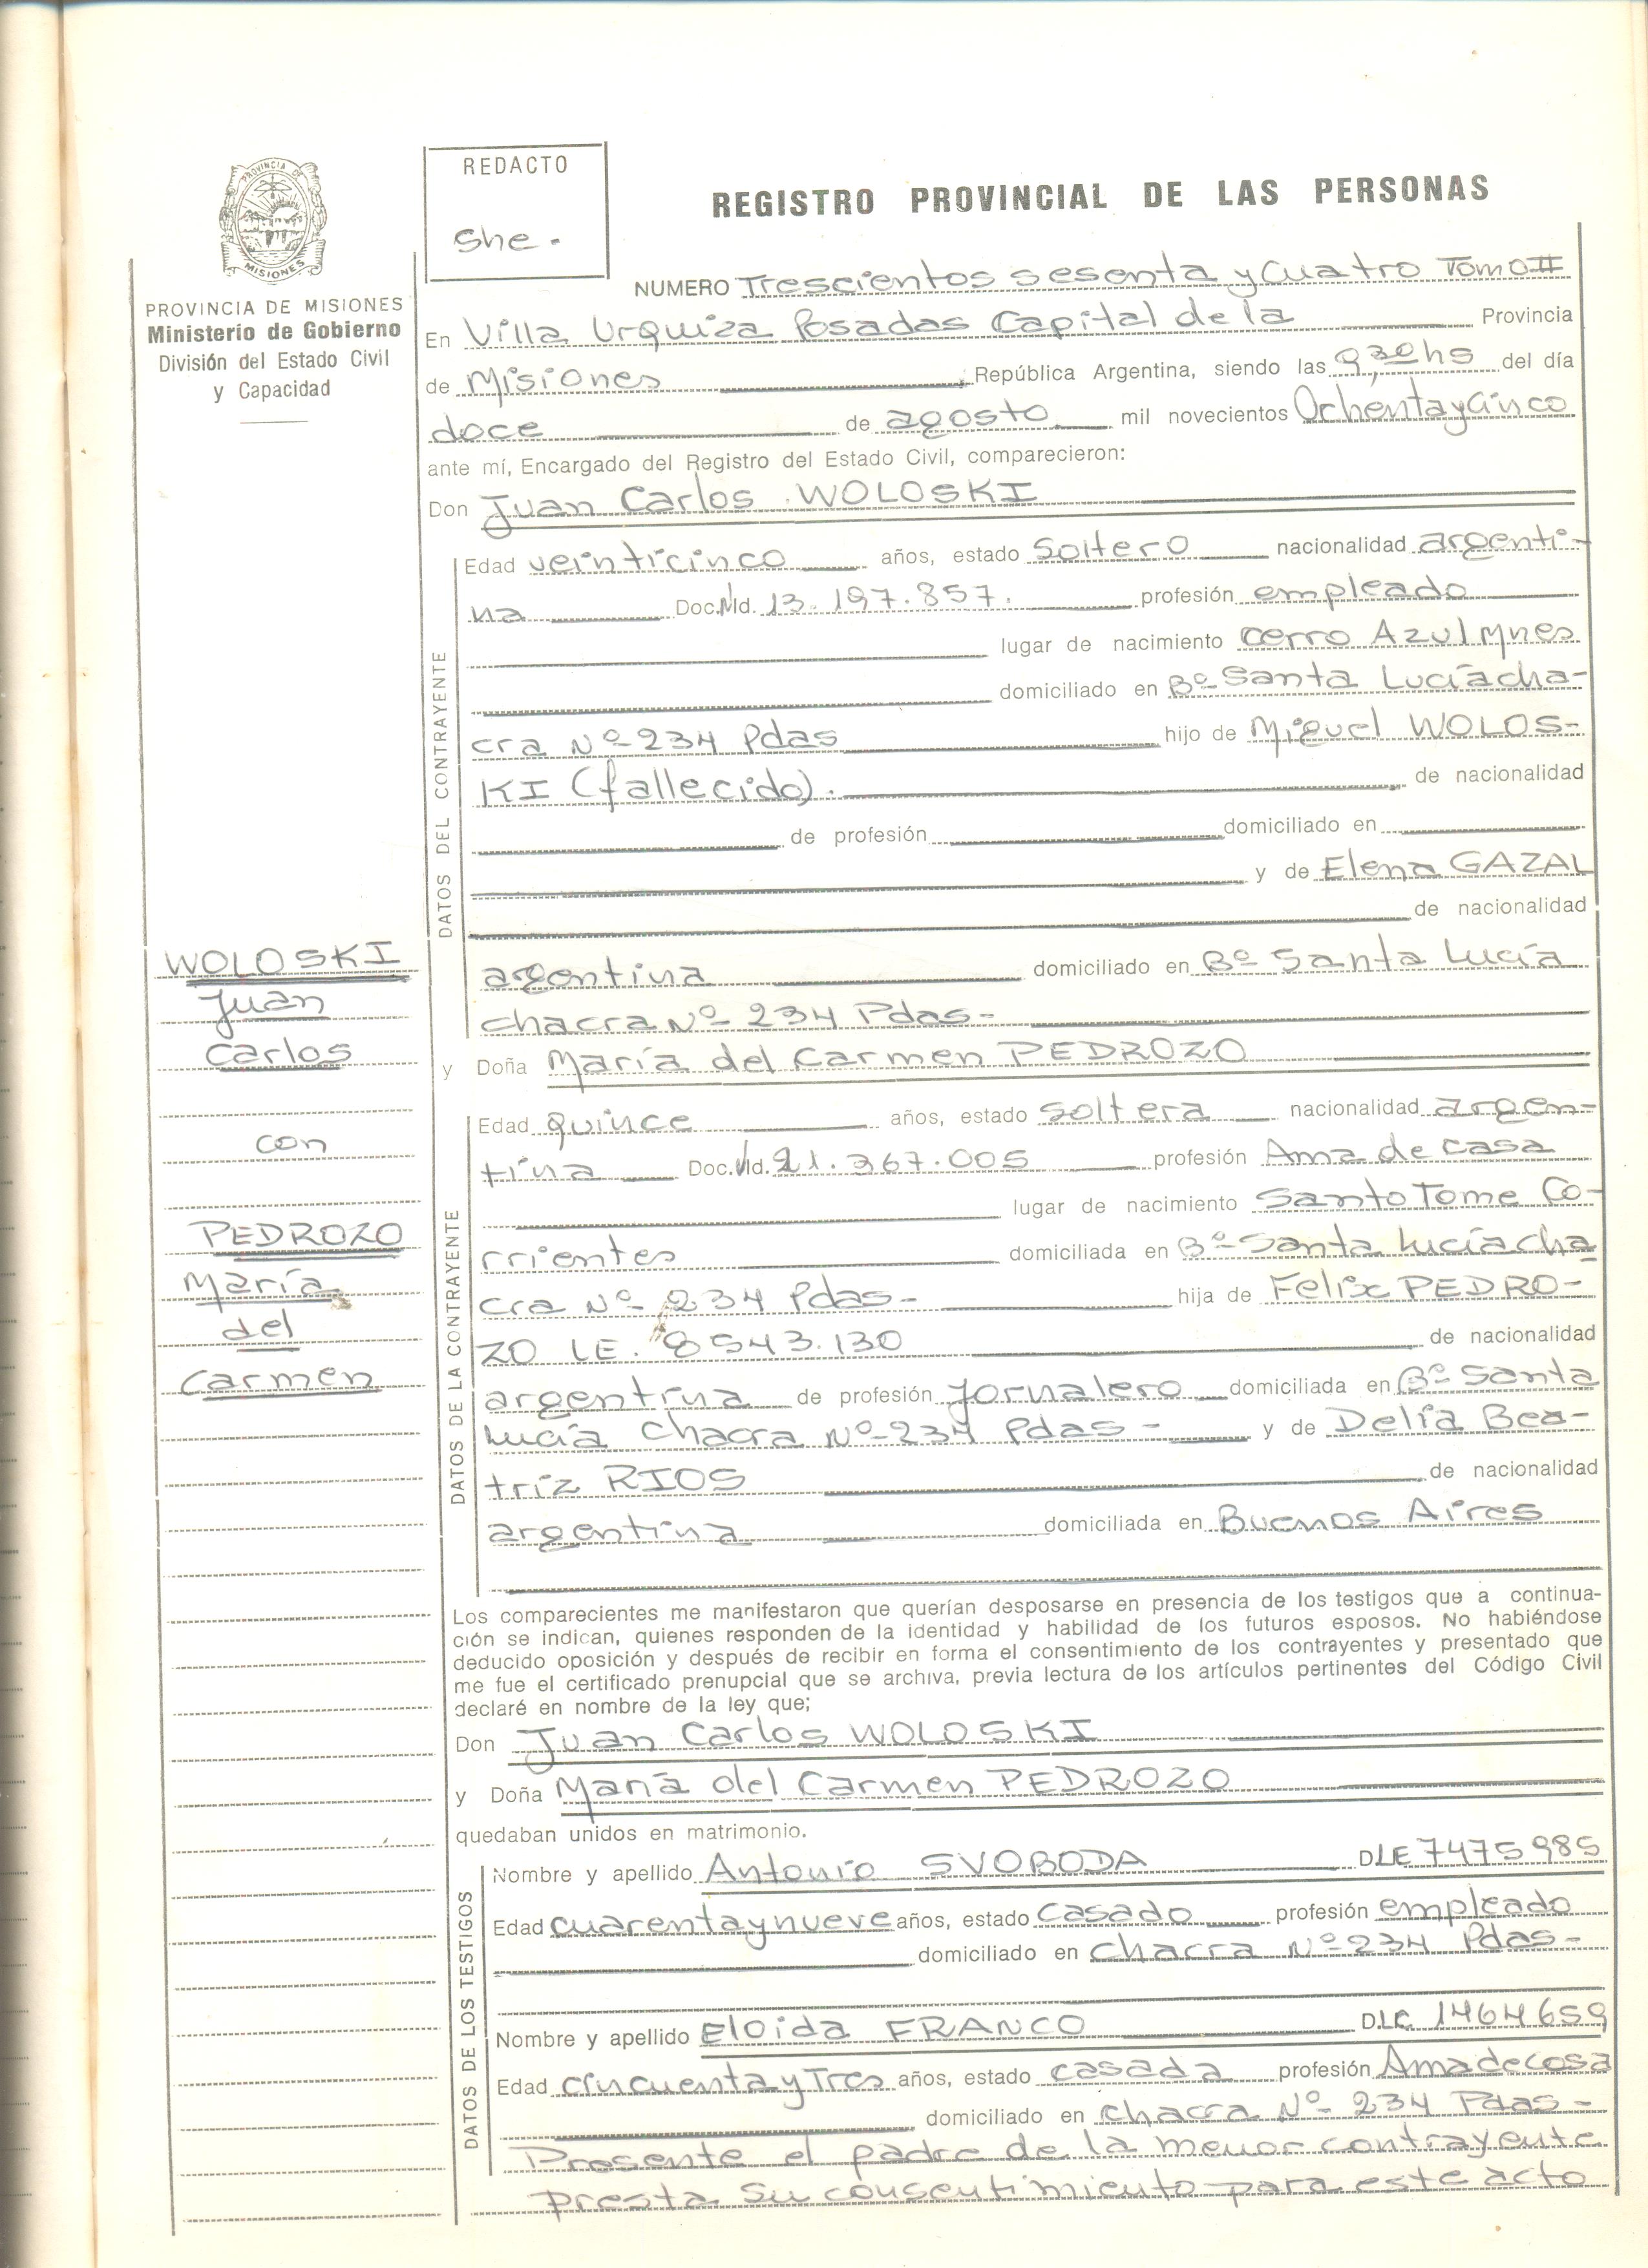 PROVINCIA DE
MISIONES
PROVINCIA DE MISIONES
Ministerio de Gobierno
División del Estado Civil
y Capacidad
REDACTO
She.
REGISTRO PROVINCIAL DE LAS PERSONAS
NUMERO Trescientos sesenta y cuatro Tomo II
En Villa Urquiza Posadas Capital de la Provincia
de Misiones, República Argentina, siendo las 9,30 hs del día
doce de agosto mil novecientos Ochenta y cinco
ante mí, Encargado del Registro del Estado Civil, comparecieron:
Don Juan Carlos WOLOSKI
DATOS DEL CONTRAYENTE
Edad veinticinco años, estado Soltero nacionalidad argenti-
na Doc.NId. 13.197.857. profesión empleado
lugar de nacimiento Cerro Azul Mnes
domiciliado en Bº Santa Lucía cha-
cra Nº 234 Pdas hijo de Miguel WOLOS-
KI (fallecido). de nacionalidad
de profesión domiciliado en
y de Elena GAZAL
de nacionalidad
argentina domiciliado en Bº Santa Lucía
chacra Nº 234 Pdas-
y Doña María del Carmen PEDROZO
WOLOSKI
Juan
Carlos
con
PEDROZO
María
del
Carmen
DATOS DE LA CONTRAYENTE
Edad quince años, estado Soltera nacionalidad argen-
tina Doc. Id. 21.367.005 profesión Ama de casa
lugar de nacimiento Santo Tome Co-
rrientes domiciliada en Bº Santa Lucía cha
cra Nº 234 Pdas- hija de Felix PEDRO-
ZO LE. 8543.130 de nacionalidad
argentina de profesión Jornalero domiciliada en Bº Santa
Lucía Chacra Nº 234 Pdas- y de Delia Bea-
triz RIOS de nacionalidad
argentina domiciliada en Buenos Aires
Los comparecientes me manifestaron que querían desposarse en presencia de los testigos que a continua-
ción se indican, quienes responden de la identidad y habilidad de los futuros esposos. No habiéndose
deducido oposición y después de recibir en forma el consentimiento de los contrayentes y presentado que
me fue el certificado prenupcial que se archiva, previa lectura de los artículos pertinentes del Código Civil
declaré en nombre de la ley que;
Don Juan Carlos WOLOSKI
y Doña María del Carmen PEDROZO
quedaban unidos en matrimonio.
DATOS DE LOS TESTIGOS
Nombre y apellido Antonio SVOBODA D.LE 7475985
Edad cuarenta y nueve años, estado Casado profesión empleado
domiciliado en chacra Nº 234 Pdas-
Nombre y apellido Eloida FRANCO D.LC 1464659
Edad cincuenta y Tres años, estado casada profesión Ama de casa
domiciliado en chacra Nº 234 Pdas-
Presente el padre de la menor contrayente
presta su consentimiento para este acto